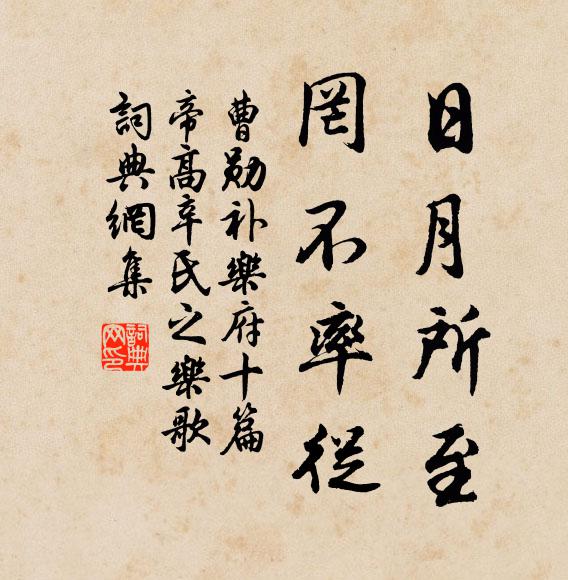 日月所至
罔不率從
曹勛补樂府十篇
帝高辛氏之樂歌
詞典網集
詞典网印